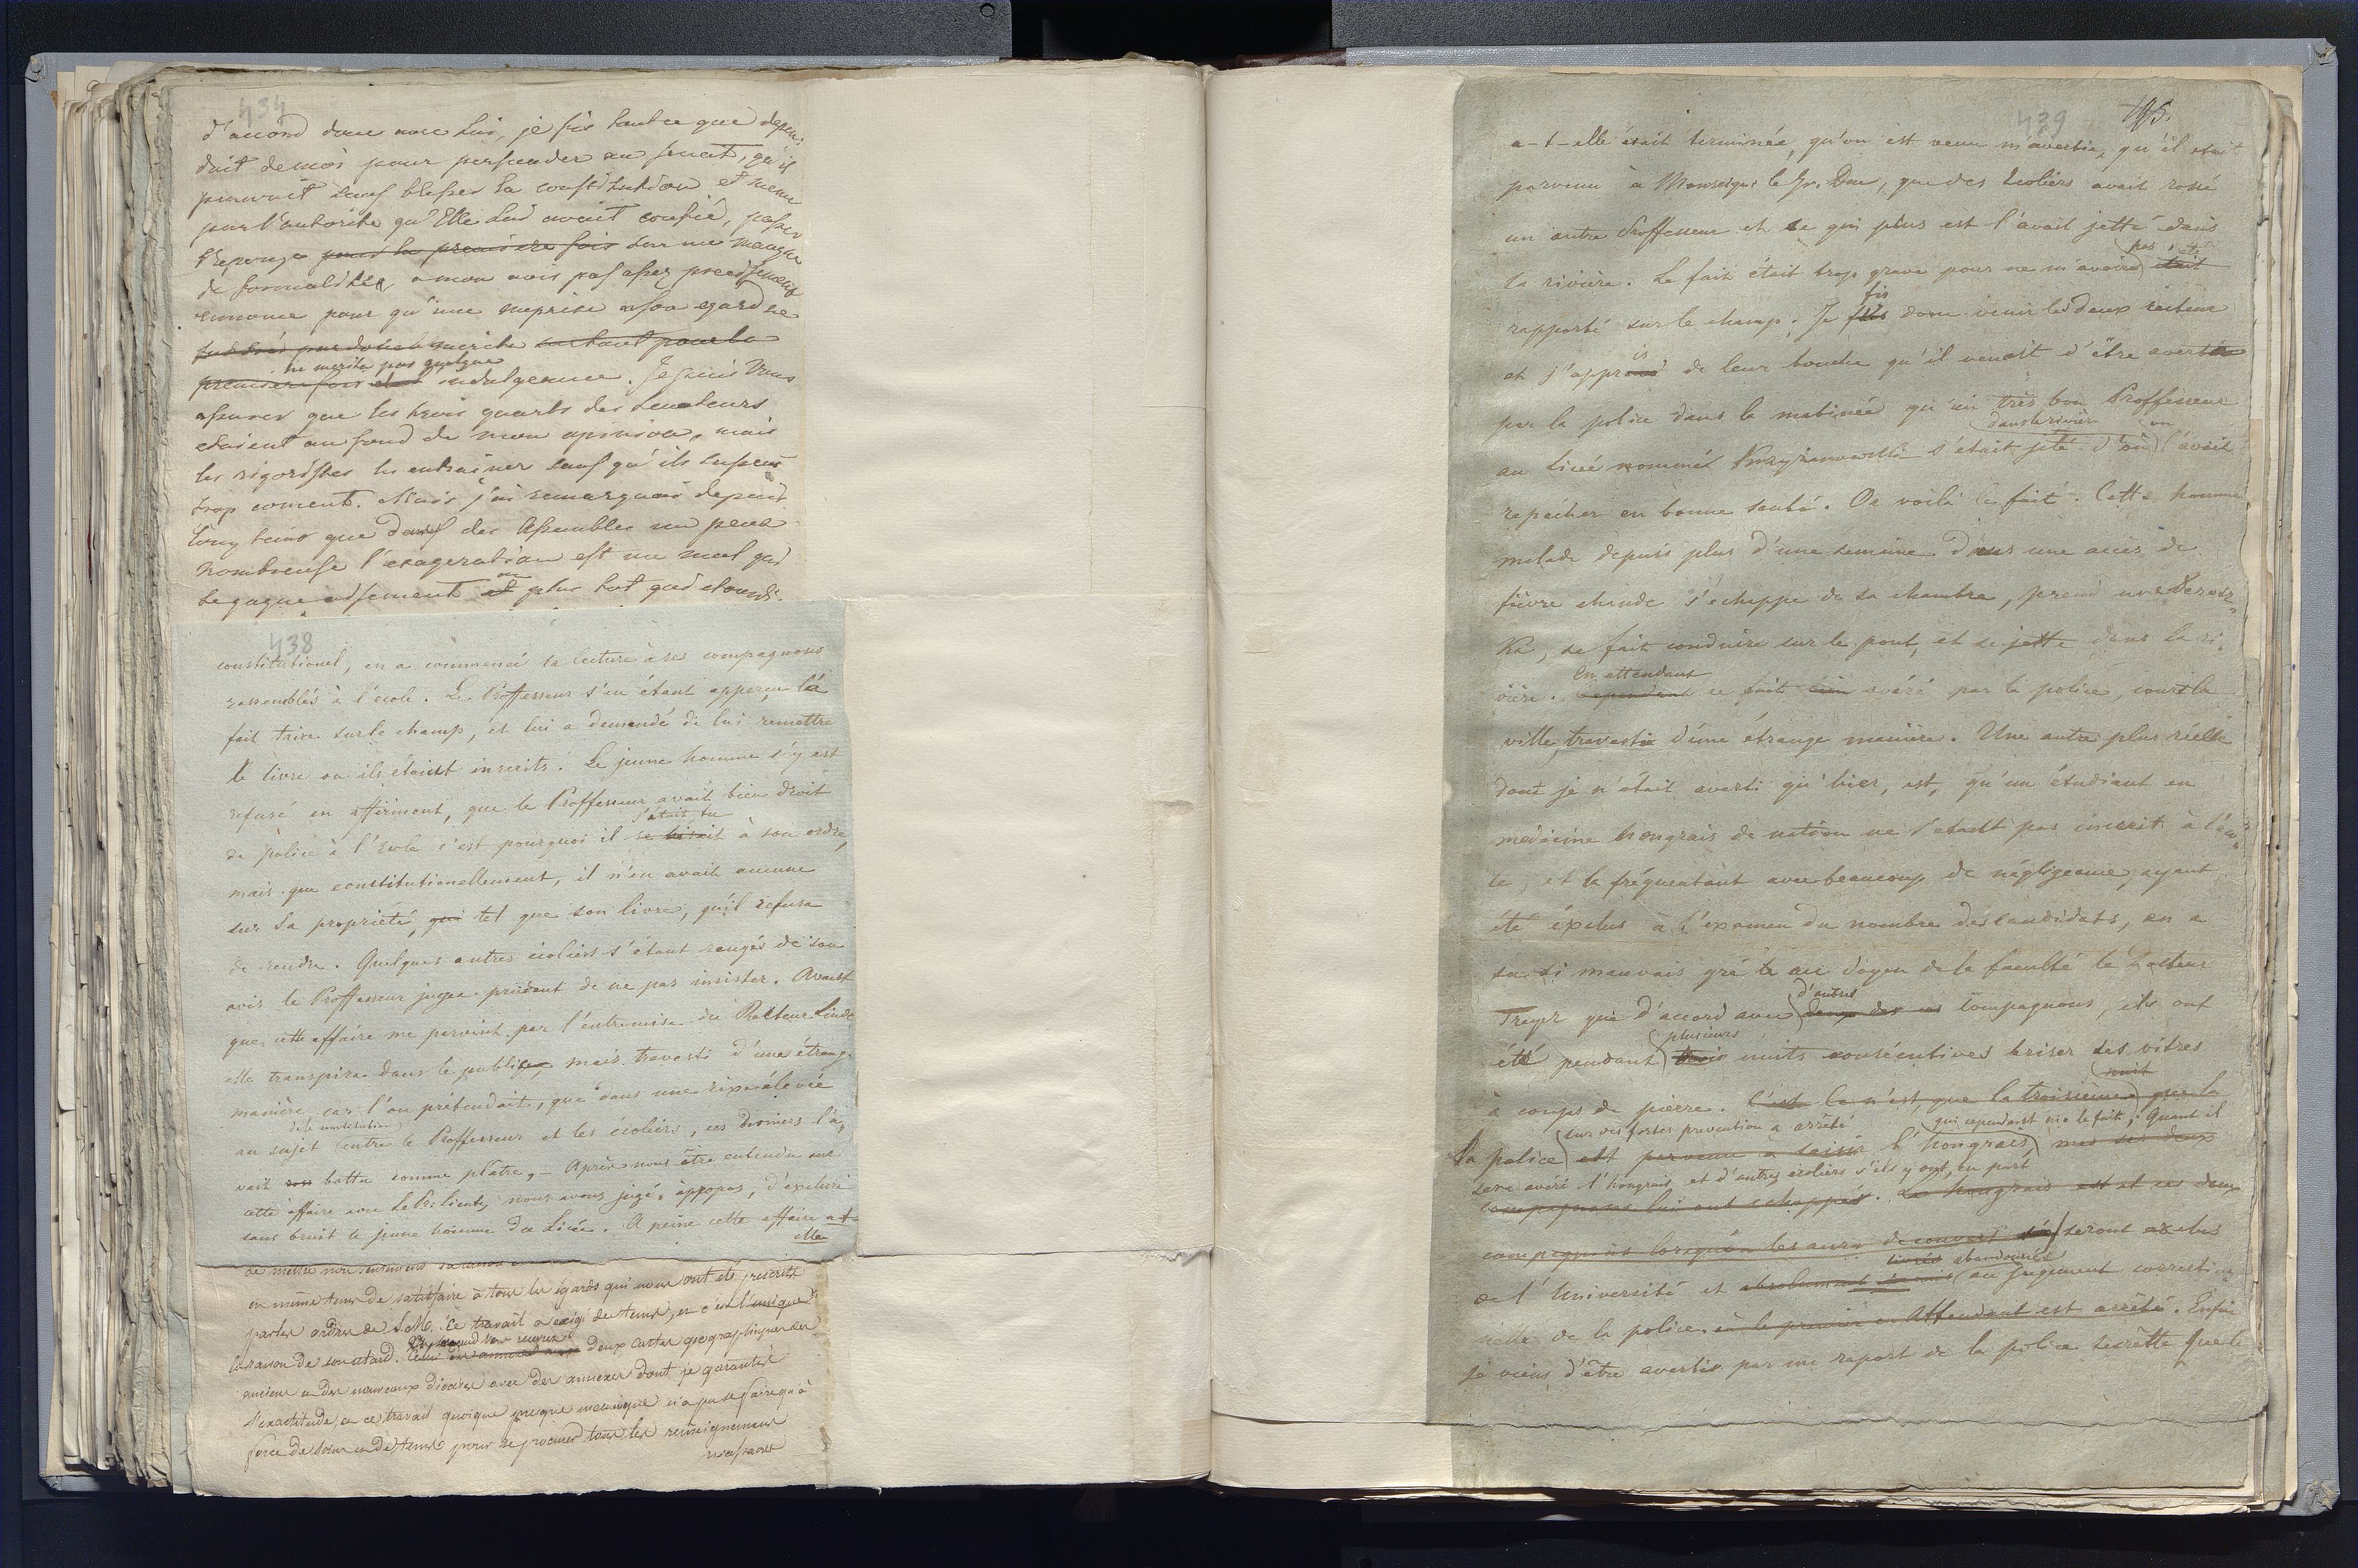 434
d'accord donc avec lui, je fis tout ce que depen-
dait de moi pour persuader au senat, qu'il
pouvait sans blesser la constitution et meme
par l'autorite qu'Elle lui avait confié, passer
l'eponge pour la premiere fois sur un manque
de formalites, a mon avis pas assez
enoncé pour qu'une meprise a son egard ne
merite surtout pour la
ne merite pas quelque
premiere fois indulgeance. Je puis Vous
assurer que les trois quarts des Senateurs
etaient au fond de mon opinion, mais
les rigoristes les entrainer sans qu'ils
trop coment. Mais j'ai remarquai depuis
long tems que dans des Assemblee un peux
nombreuse l'exageration est un mal qui
se gagne aisement et plus tot
438
constitutionel, en a commencé la lecture à ses compagnons
rassemblés à l'école. Le Professeur s'en étant apperçu l'a
fait taire sur le champ, et lui a demandé de lui remettre
le livre ou ils étaient inscrits. Le jeune homme s'y est
refusé en affirmant, que le Professeur avait bien droit
s'etait tu
de police à l'Ecole c'est pourquoi il se taisait à son ordre,
mais que constitutionellement, il n'en avait aucune
sur sa propriété, qui tel que son livre, qu'il refusa
de rendre. Quelques autres écoliers s'étant rangés de son
avis le Professeur jugea prudent de ne pas insister. Avant
que cette affaire me parvint par l'entremise du Recteur Linde
elle transpira dans le public, mais travesti d'une étrange
manière, car l'on prétendait, que dans une rixe élevée
de la constitution
au sujet entre le Professeur et les écoliers, ces derniers l'a-
vait battu comme plâtre. – Après nous être entendu sur
cette affaire avec Le Pr. Lieut, nous avons jugé, àppopos, d'exclure
sans bruit le jeune homme du Licée. A peine cette affaire a-t-
elle
en même tems de satisfaire à tous les égards qui nous ont été prescrits
par les ordres de S. M. Ce travail a exigé du tems, et c'est l'unique
la raison de son retard. deux cartes géographiques des
anciens et des nouveaux diocèses avec des annexes dont je garantis
l'exactitude, et ce travail quoique presque mecanique n'a pu se faire qu'à
force de soins et de tems pour se procurer tous les renseignemens
necessaires
439
195.
a-t-elle était terminée, qu'on est venu m'avertir, qu'il etait
parvenu à Monseigr. le Gr. Duc, que des écoliers avait rossé
un autre Professeur et ce qui plus est l'avait jetté dans
pas
la rivière. Le fait était trop grave pour ne m'avoir était
fis
rapporté sur le champ. Je donc venir les deux recteur
is
et j'appris de leur bouche qu'il venait d'être avertis
par la police dans la matinée qu'un très bon Professeur
dans la rivière on
au Licée nommé s'etait jeté d'où l'avait
repecher en bonne santé. Or voilà le fait. Cette homme
malade depuis plus d'une semaine dans une accès de
fièvre chaude s'echappe de sa chambre, prend une Deroz-
ka, se fait conduire sur le pont, et se jette dans la ri-
En attendant
vière. Cependant ce fait bien avéré par la police, court la
ville, travesti d'une étrange manière. Une autre plus réelle
dont je n'était averti qu'hier, est, qu'un étudiant en
medecine hongrais de nation ne s'étant pas inscrit à l'éco-
le, et la fréquentant avec beaucoup de négligeance, ayant
été exclus à l'examen du nombre des candidats, en a
su si mauvais gré au doyen de la faculté le Docteur
d'autres
que d'accord avec deux des ces compagnons, ils ont
plusieurs
été pendant trois nuits conséentives briser ses vitres
nuit
à coups de pierre. C'est Ce n'est, que la troisième que la
sur des fortes prevention a arrêté qui cependant nie le fait; Quant il
la police est parvenue a saisir l'hongrais mes ses deux
sera avéré l'hongrais, et d'autres écoliers s'ils y ont eu part
compagnons lui ont echappés. Le hongrais est et ces deux
compagnons lorsqu'on les aura decouvert seront exclus
livrés abandonnés
de l'Université et absolument au jugement correction-
nelle de la police. en attendant est arrêté. Enfin
je viens d'être avertis par un raport de la police secrètte que le